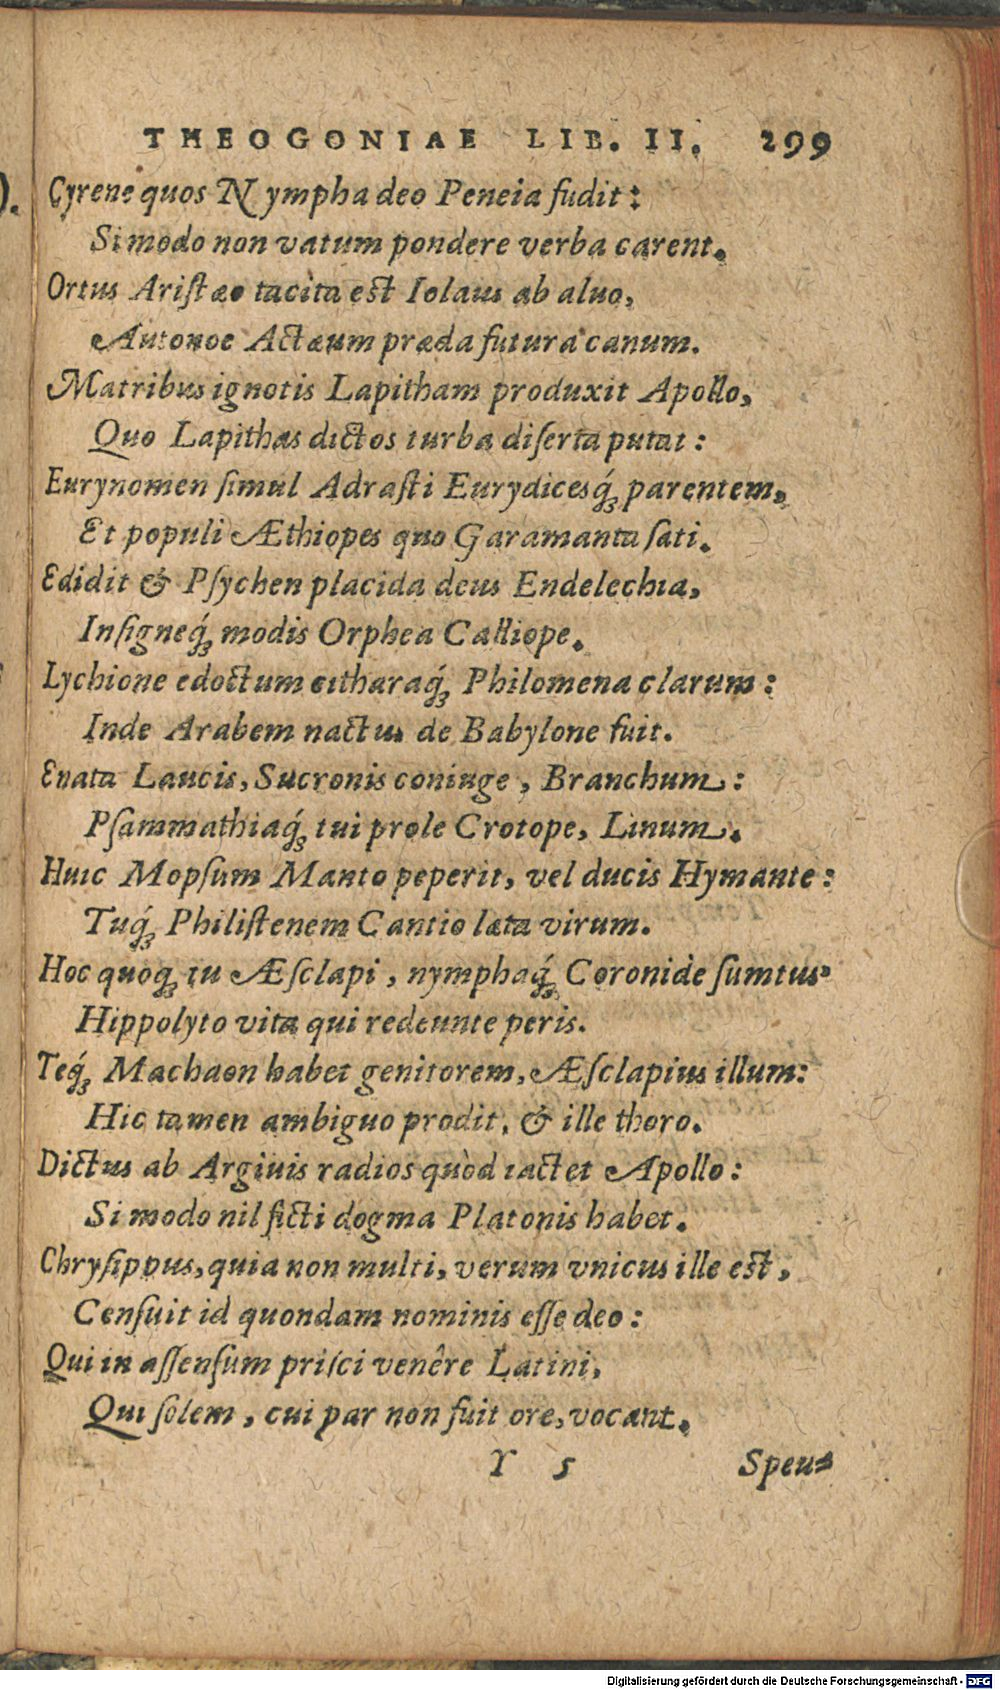 THEOGONIAE LIB. II. 299
Cyrene quos Nympha deo Peneia fudit:
Si modo non vatum pondere verba carent.
Ortus Aristæo tacita est Iolaus ab aluo,
Autonoe Actæum præda futura canum.
Matribus ignotis Lapitham produxit Apollo,
Quo Lapithas dictos turba diserta putat:
Eurynomen simul Adrasti Eurydicesq́ꝫ parentem,
Et populi Æthiopes quo Garamanta sati.
Edidit & Psychen placida deus Endelechia,
Insigneq́ꝫ modis Orphea Calliope.
Lychione edoctum citharaq́ꝫ Philomena clarum:
Inde Arabem nactus de Babylone fuit.
Enata Laucis, Sucronis coniuge, Branchum:
Psammathiaq́ꝫ tui prole Crotope, Linum.
Huic Mopsum Manto peperit, vel ducis Hymante:
Tuq́ꝫ Philistenem Cantio læta virum.
Hoc quoqꝫ tu Æsclapi, nymphaq́ꝫ Coronide sumtus
Hippolyto vita qui redeunte peris.
Teq́ꝫ Machaon habet genitorem, Æsclapius illum:
Hic tamen ambiguo prodit, & ille thoro.
Dictus ab Argiuis radios quòd iactet Apollo:
Si modo nil ficti dogma Platonis habet.
Chrysippus, quia non multi, verum vnicus ille est,
Censuit id quondam nominis esse deo:
Qui in assensum prisci venêre Latini,
Qui solem, cui par non fuit ore, vocant.
Y 5 Speu-
Digitalisierung gefördert durch die Deutsche Forschungsgemeinschaft - DFG